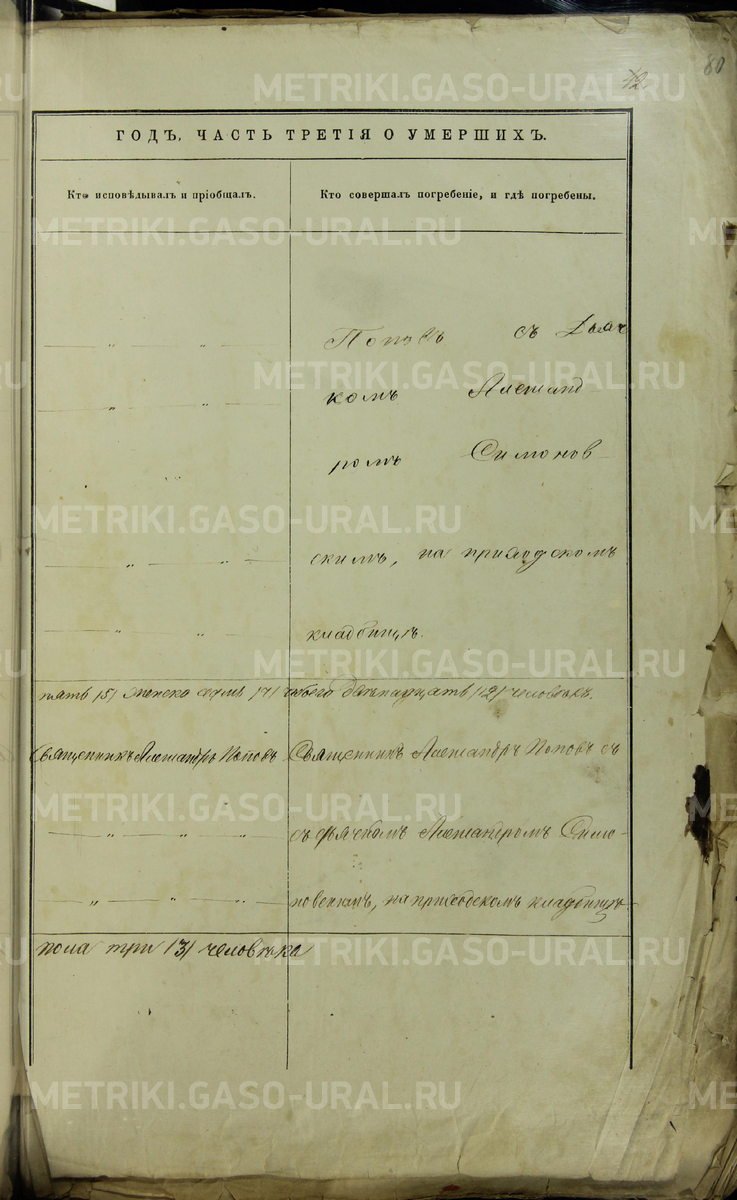 80
42.
ГОДЪ, ЧАСТЬ ТРЕТІЯ О УМЕРШИХЪ.
Кто исповѣдывалъ и пріобщалъ.
Кто совершалъ погребеніе, и гдѣ погребены.
— „ — „ — Поповъ съ Дьяч
— „ — „ — комъ Александ-
ромъ Симонов-
— „ — „ — скимъ, на приходскомъ
— „ — „ — кладбищѣ.
пять /5/ женска семь /7/ обоего двенадцать /12/ человѣкъ.
Священникъ Александръ Поповъ
Священникъ Александръ Поповъ съ
— „ — „ — „ — съ дьячкомъ Александромъ Симо-
— „ — „ — „ — новскимъ, на приходскомъ кладбищѣ.
пола три /3/ человѣка
METRIKI.GASO-URAL.RU